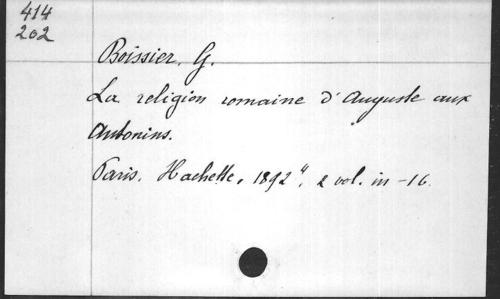 414
202
Boissier, G.
La religion romaine d'Auguste aux
Antonins.
Paris, Hachette, 1892⁴, 2 vol. in-16.